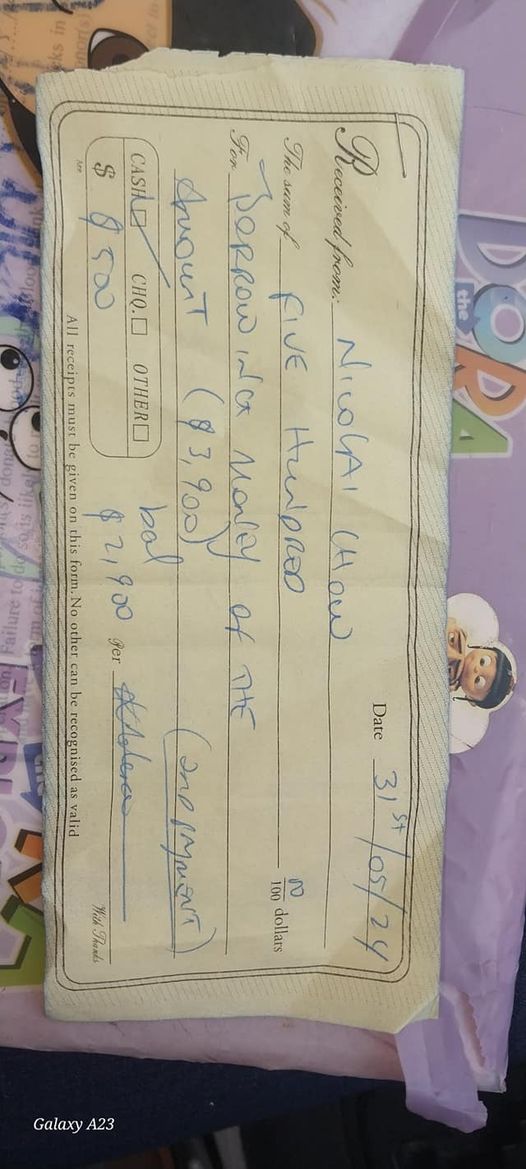 Date 31st/05/24
Received from: Nicolai Chow
The sum of Five Hundred 00/100 dollars
For Borrowing Money of the
Amount ($3,900) (2nd payment)
CASH ☑ CHQ. ☐ OTHER ☐ bal
$ $500 $2,900 Per
With Thanks
All receipts must be given on this form. No other can be recognised as valid
DORA
the
EXPLORER
Galaxy A23